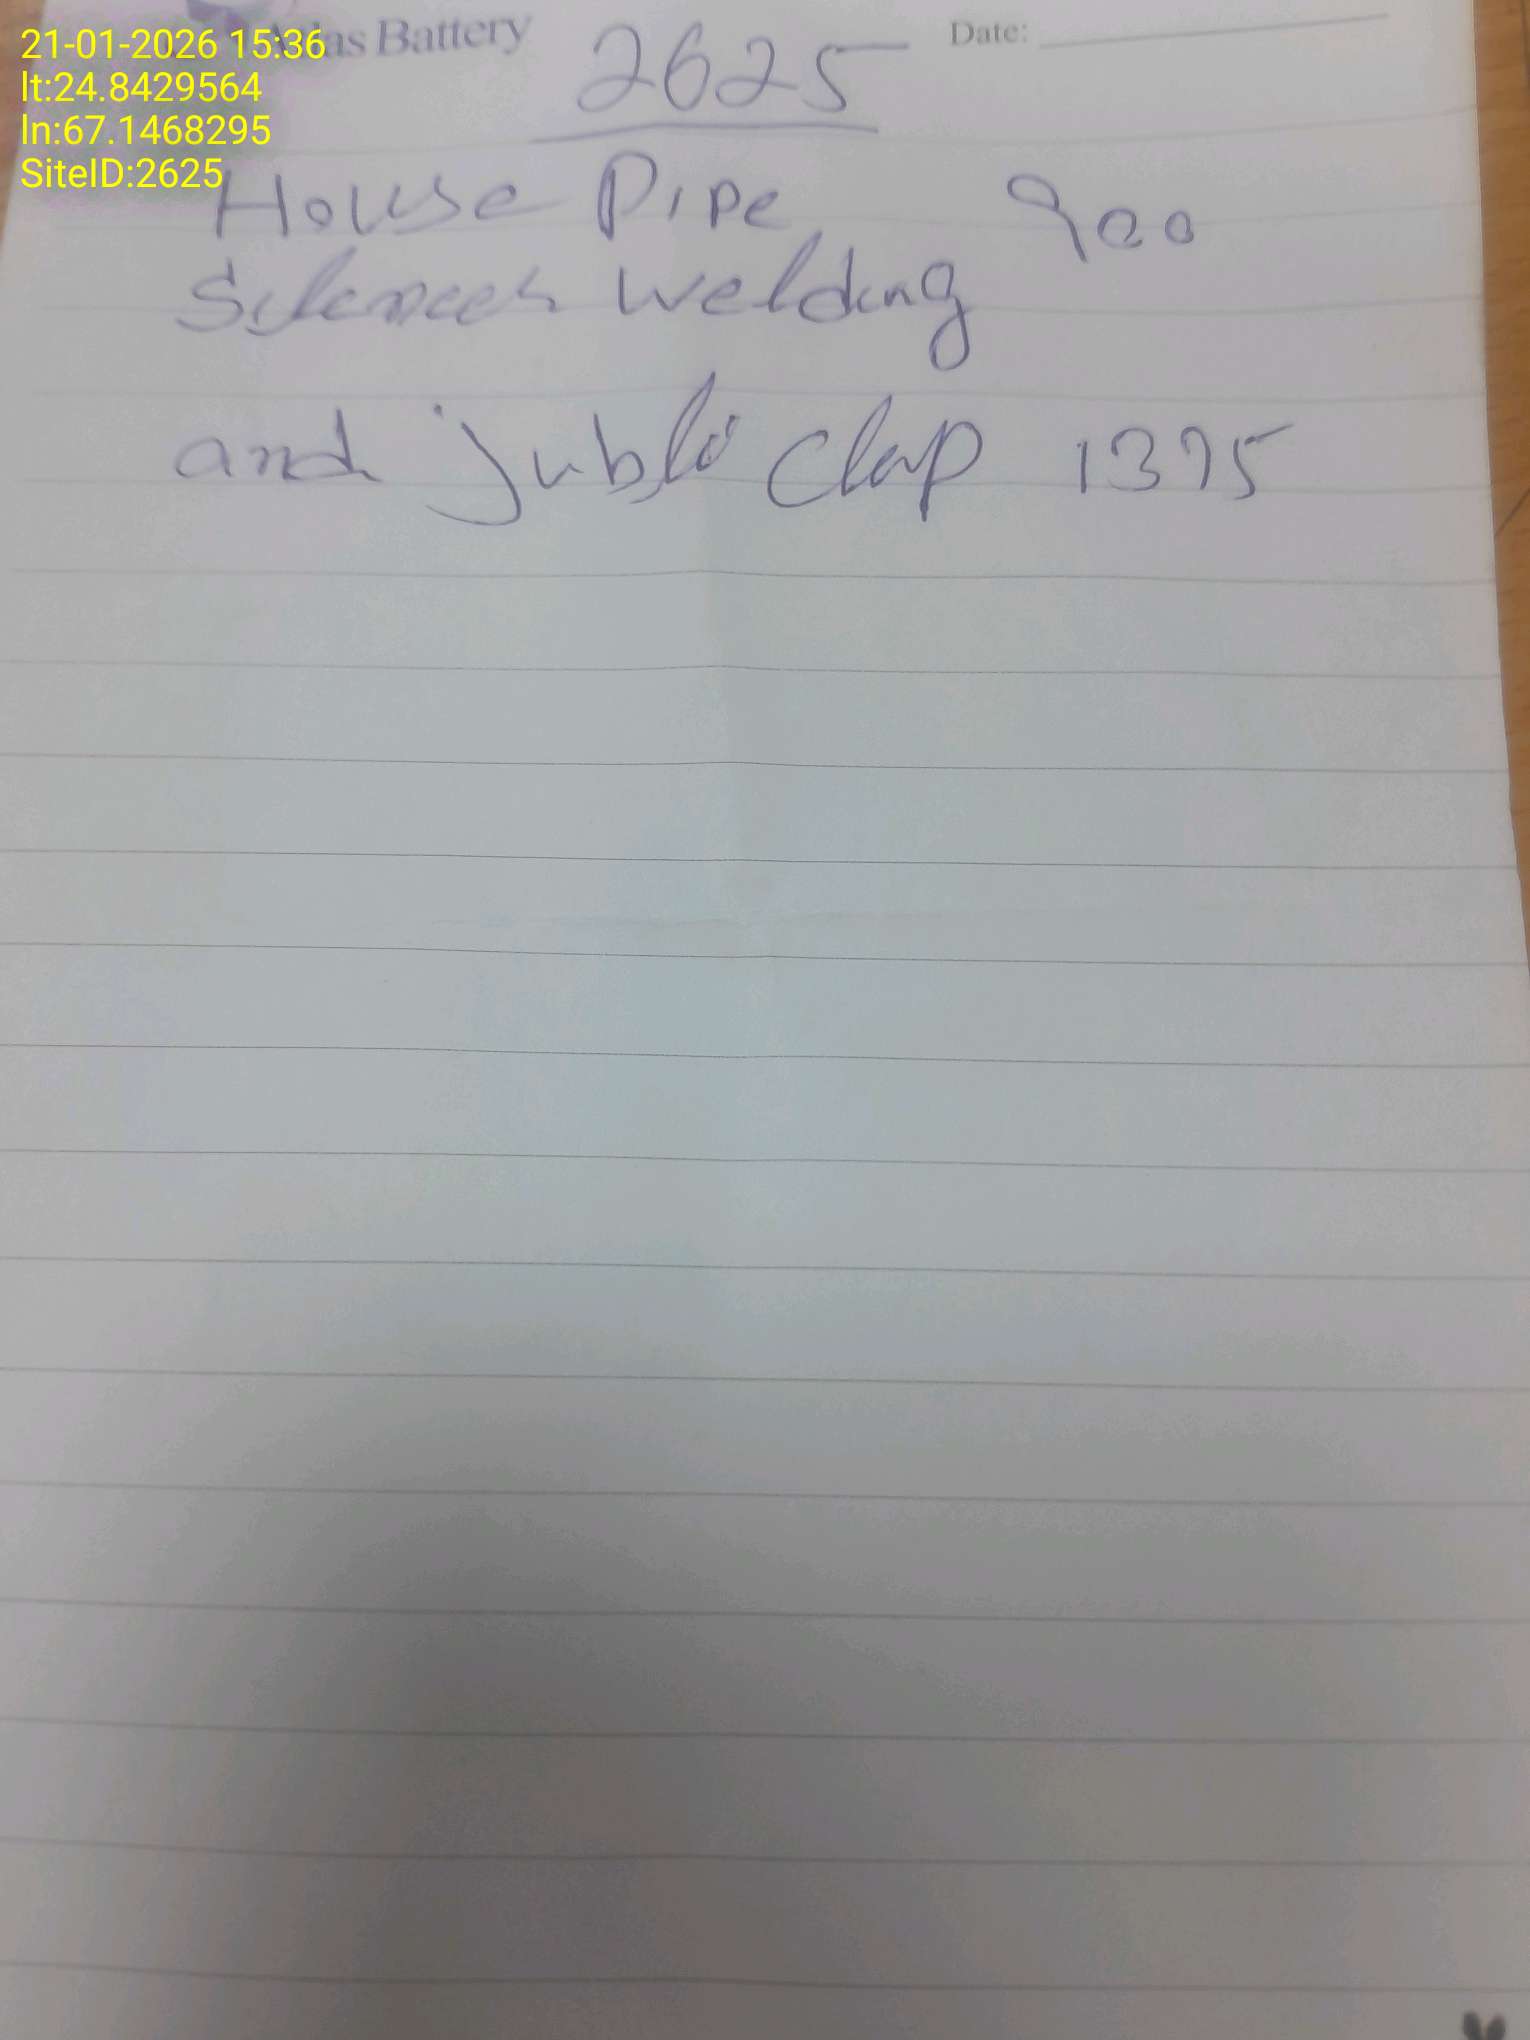 21-01-2026 15:36
lt:24.8429564
ln:67.1468295
SiteID:2625
as Battery
2625
Date:
House Pipe 900
Silencer welding
and jubli clap 1375